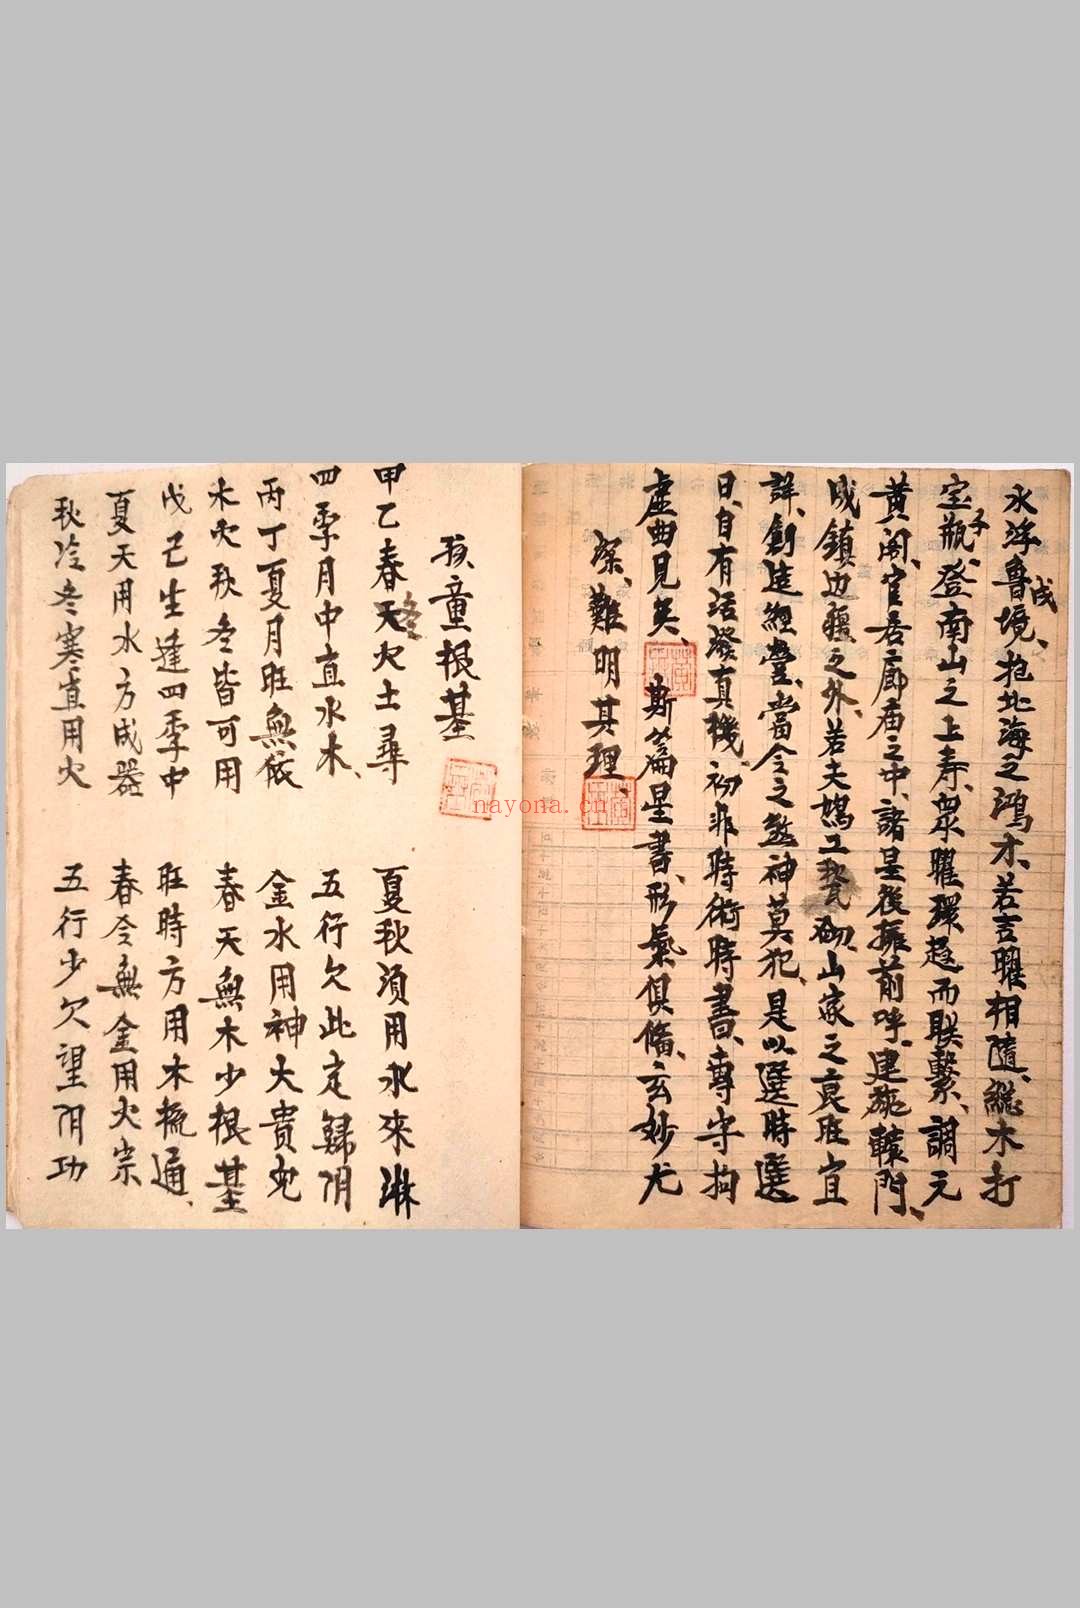 水浮魯境、抱北海之鴻才、若言曜相隨、総木打
戌
宝瓶、登南山之上寿、衆曜環趨而联繫、調元
子
黄阁、官居廊庙之中、諸星後擁前呼、建旄轅門、
威鎮边疆之外、若夫鳩工 山家之 宜
詳、創造經營、當令之煞神莫犯、是以選時選
日、自有活潑真機、初非時術時書、專守拘
虚曲見矣、斯篇星書、形氣俱脩、玄妙尤
深、難明其理、
孩童根基
甲乙春天火土尋 夏秋須用水來淋
冬
四季月中直水木、 五行欠此定歸阴
丙丁夏月旺無依 金水用神大貴兒
木火秋冬皆可用 春天無木少根基
戊己生逢四季中 旺時方用木梳通、
夏天用水方成器 春令無金用火宗
秋冷冬寒直用火 五行少欠望阴功
nayona.cn